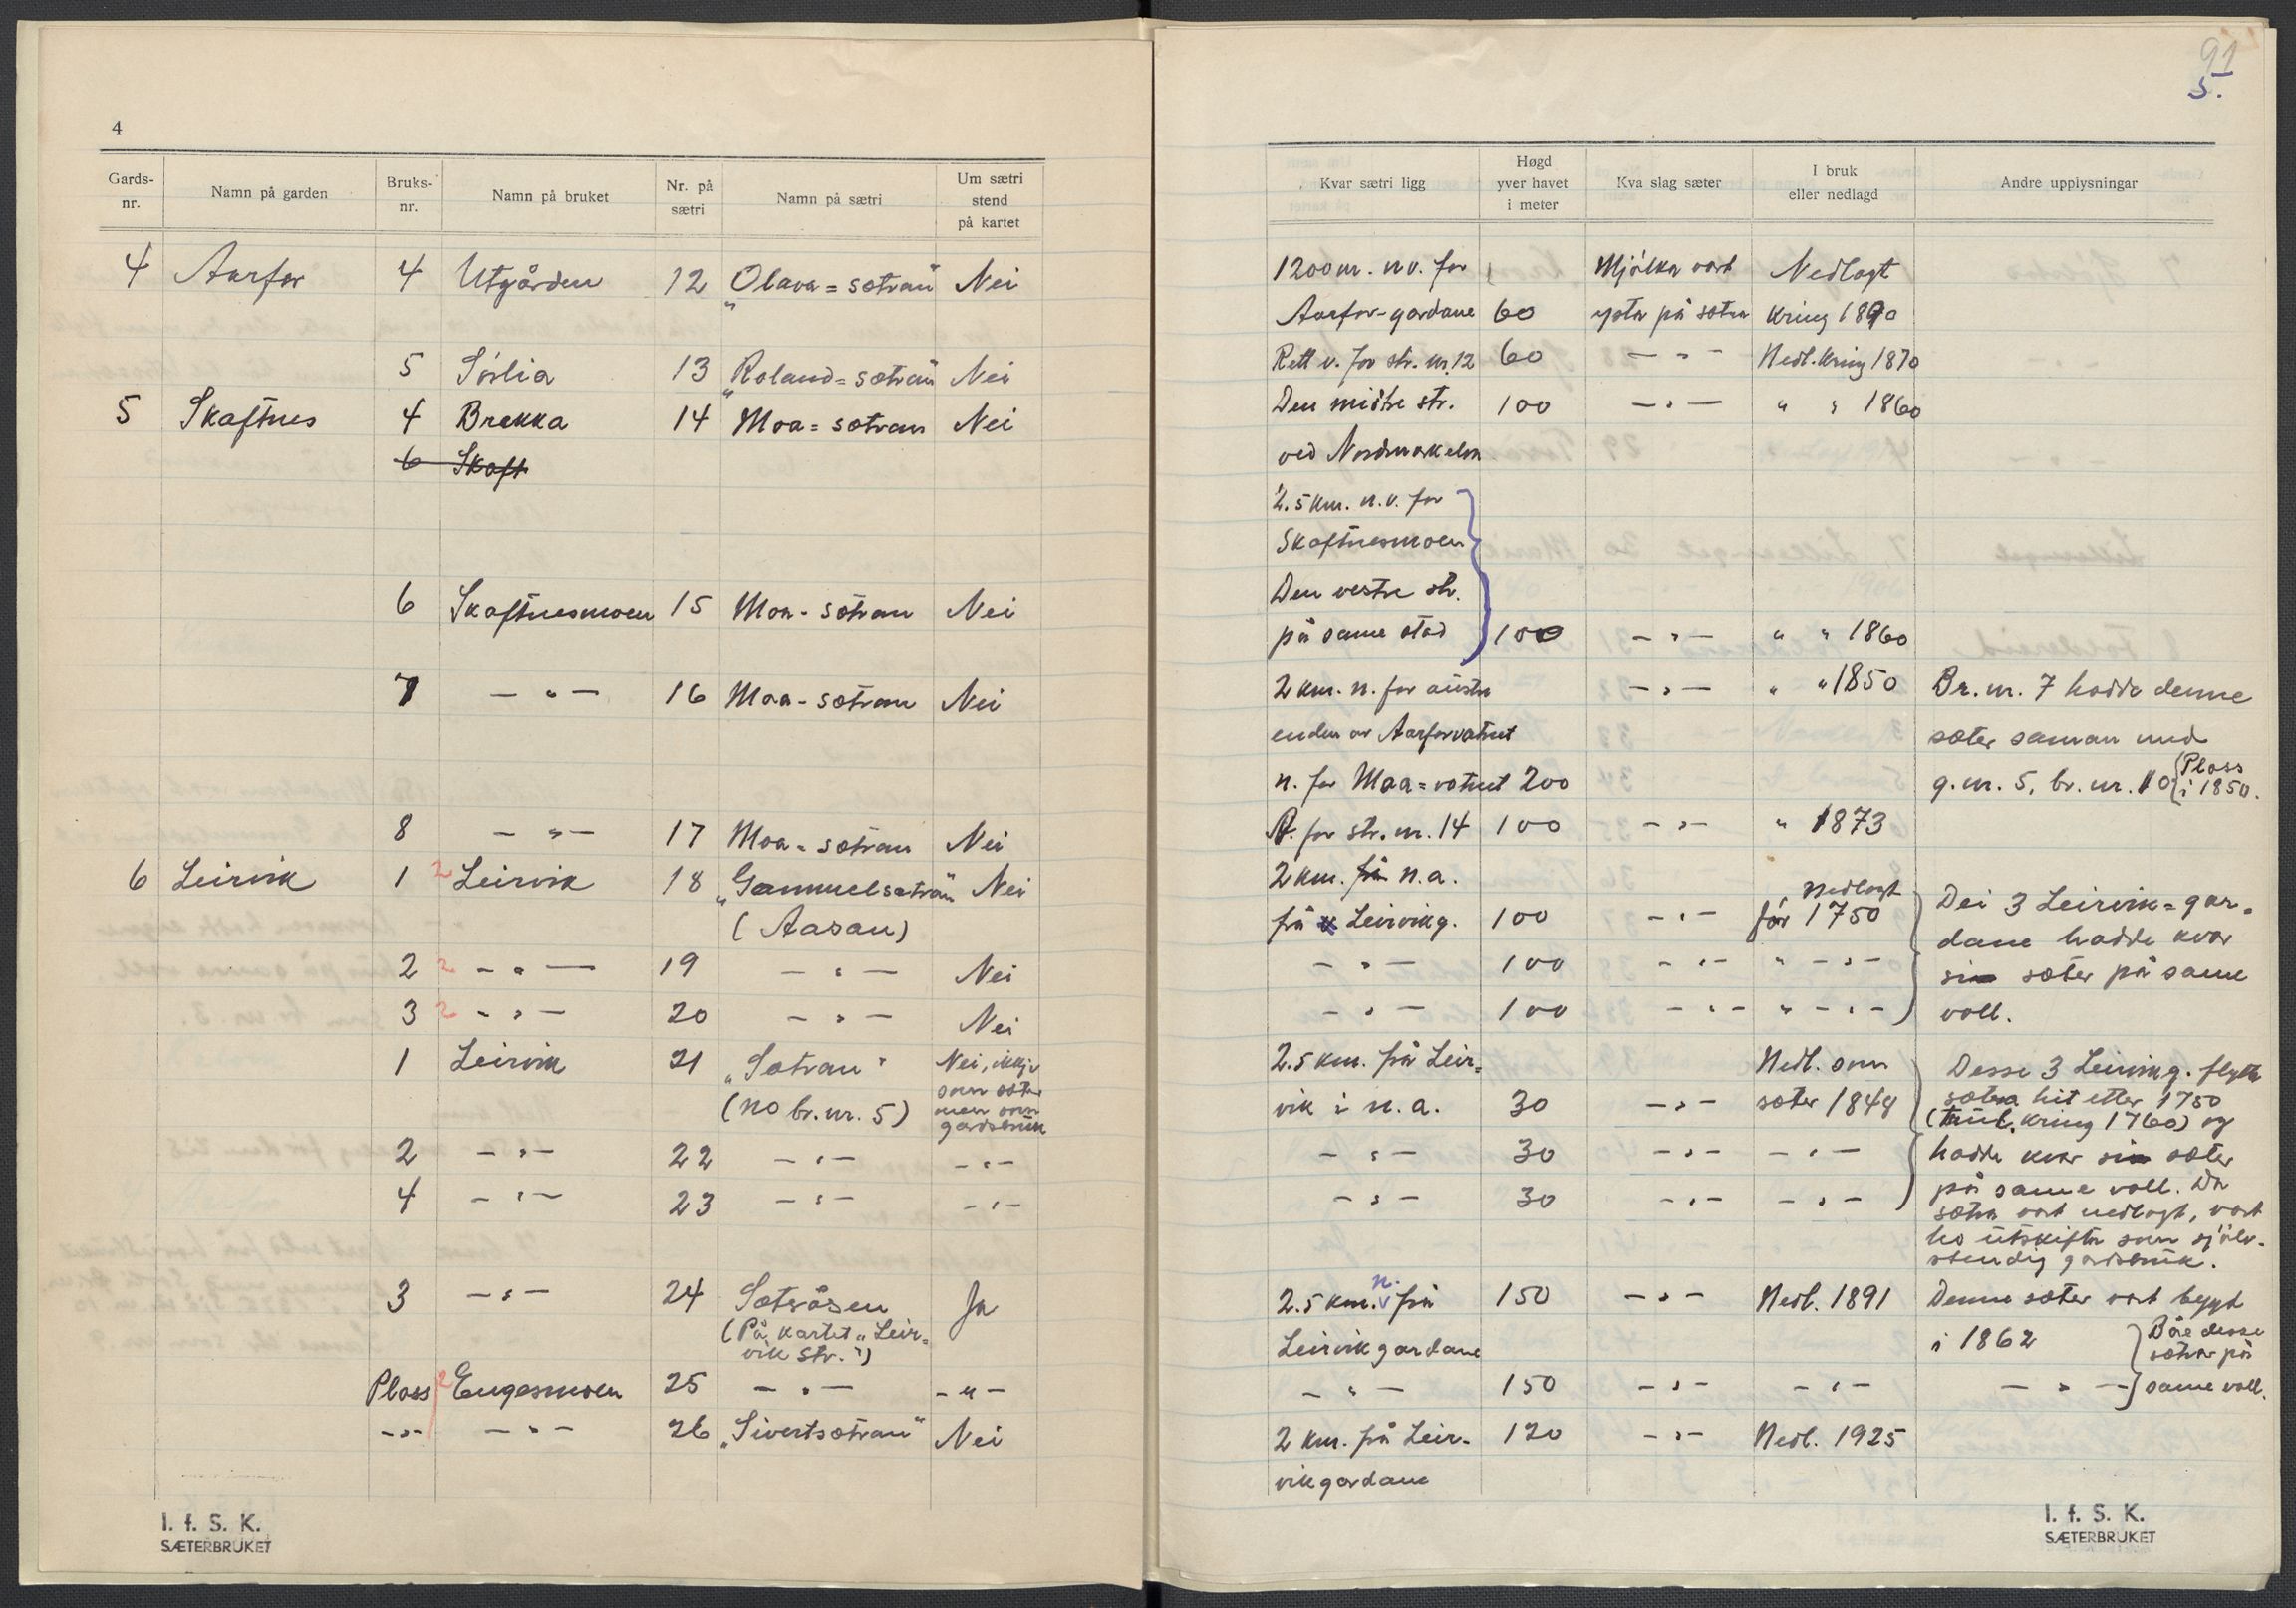 4
Gards-nr. Namn på garden Bruks-nr. Namn på bruket Nr. på sætri Namn på sætri Um sætri stend på kartet
4 Aarfor 4 Utgården 12 „Olava=sætran" Nei
5 Sörlia 13 „Roland=sætran" Nei
5 Skaftnes 4 Brekka 14 Moa=sætran Nei
6 Skaft
6 Skaftnesmoen 15 Moa-sætran Nei
7 —"— 16 Moa-sætran Nei
8 —"— 17 Moa-sætran Nei
6 Leirvik 1 2 Leirvik 18 „Gammuelsætran" Nei
(Aasan)
2 2 —"— 19 —"— Nei
3 2 —"— 20 —"— Nei
1 Leirvik 21 „Sætran" Nei, ikkje
som sæter
(no br. nr. 5) men som
gardsbruk
2 —"— 22 —"— —"—
4 —"— 23 —"— —"—
3 —"— 24 Sætråsen Ja
(På kartet „Leir=
vik str.")
Plass 2 Engesmoen 25 —"— —"—
—"— —"— 26 „Sivertsætran" Nei
I. f. S. K.
SÆTERBRUKET
91
5.
Kvar sætri ligg Høgd yver havet i meter Kva slag sæter I bruk eller nedlagd Andre upplysningar
1200 m. n.v. for Mjölka vart Nedlagt
Aarfor-gardane 60 ysta på sætra kring 1890
Rett v. for str. nr. 12 60 —"— Nedl. kring 1870
Den midtre str. 100 —"— " " 1860
ved Nordmarkelva
2.5 km. n.v. for
Skaftnesmoen
Den vestre str.
på same stad 100 —"— " " 1860
2 km. n. for austre —"— " " 1850 Br. nr. 7 hadde denne
enden av Aarforvatnet sæter saman med
n. for Moa=vatnet 200 g. nr. 5, br. nr. 10 (Plass
i 1850.
A. for str. nr. 14 100 —"— " 1873
2 km. frå n.a. Nedlagt
frå Leirvikg. 100 —"— för 1750 Dei 3 Leirvik=gar=
dane hadde kvar
—"— 100 —"— " —"— si sæter på same
—"— 100 —"— " —"— voll.
2.5 km. frå Leir= Nedl. som Desse 3 Leirvikg. flytta
vik i n.a. 30 —"— sæter 1849 sætra hit etter 1750
(truleg kring 1760) og
—"— 30 —"— —"— hadde kvar si sæter
—"— 30 —"— —"— på same voll. Da
sætra vart nedlagt, vart
ho utskifta som sjölv-
stendig gardsbruk.
2.5 km. n. frå 150 —"— Nedl. 1891 Denne sæter vart bygt
Leirvikgardane i 1862 Båe desse
sætrar på
—"— 150 —"— —"— —"— same voll.
2 km. frå Leir- 120 —"— Nedl. 1925
vikgardane
I. f. S. K.
SÆTERBRUKET